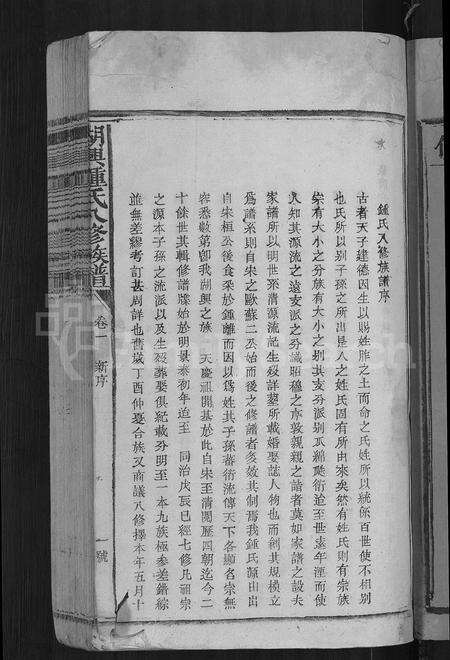 鍾氏八修族譜序
古者天子建德因生以賜姓胙之土而命之氏姓所以統係百世使不相別
也氏所以別子孫之所出是人之姓氏固有所由來矣然有姓氏則有宗族
宗有大小之分族有大小之別其支分派別瓜綿衍迨至世遠年湮而使
人知其源流之遠支派之分識昭穆之亦敦親親之誼者莫如家譜之設夫
家譜所以明世系清源流記生歿詳塋所載婚娶誌人物也而創其規模立
為譜系則自宋之歐蘇二公始而後之修譜者多效其制焉我鍾氏源由出
自宋桓公後食采於鍾離而因以為姓其子孫蕃衍流傳天下各顯名宗無
容悉數第卽我湖興之族 天慶祖開基於此自宋至清閱歷四朝迄今二
十餘世其輯修譜牒始於明景泰初年迨至 同治戊辰已經七修凡祖宗
之源本子孫之流派以及生歿葬娶俱紀載分明至一本九族極参差錯綜
並無差繆考訂甚周詳也舊歲丁酉仲夏合族又商議八修擇本年五月十
湖興鍾氏八修族譜
卷一 新序
一號